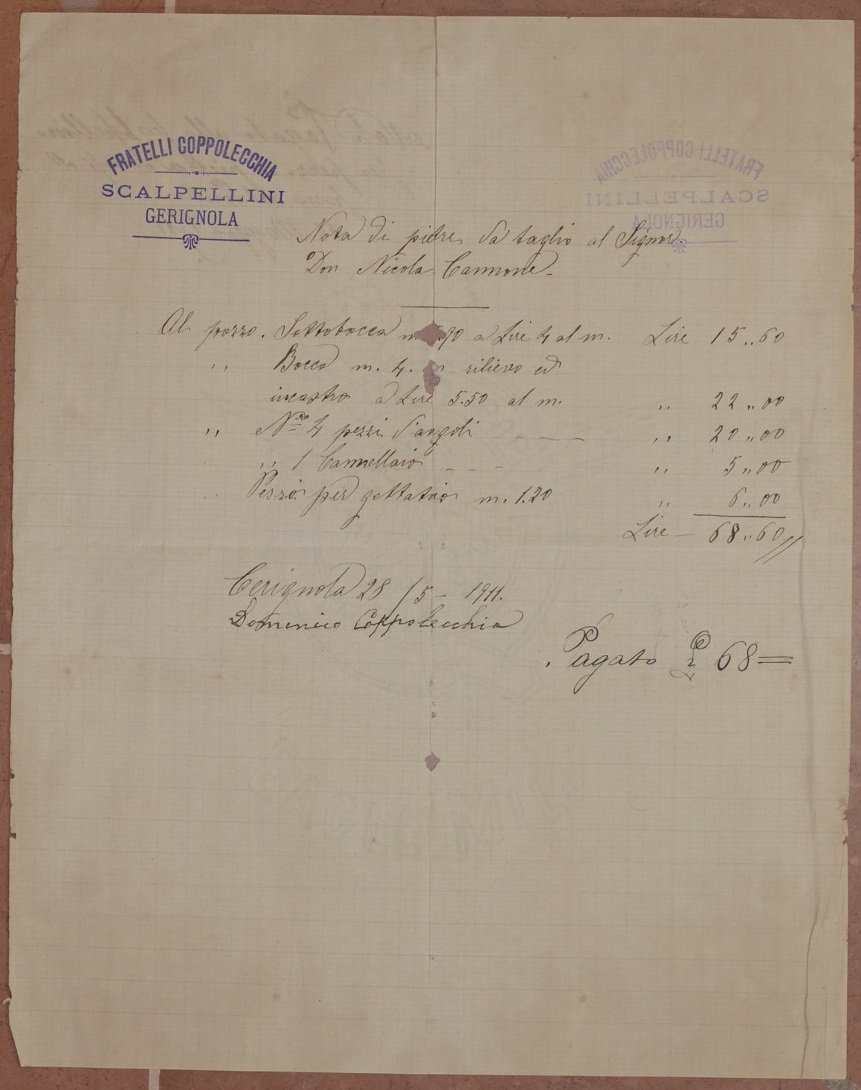 FRATELLI COPPOLECCHIA
SCALPELLINI
GERIGNOLA
Nota di pietre da taglio al Signor
Don Nicola Cannone.
Al pozzo. Sottobocca m. .90 a Lire 4 al m. Lire 15..60
,, Bocca m. 4. rilievo ed
incastro a Lire 5.50 al m. ,, 22..00
,, N.ro 4 pezzi d'angoli - - - - ,, 20..00
,, 1 Cannellaio - - - ,, 5..00
Pezzi per gettatoio m. 1.20 ,, 6..00
Lire - 68..60//
Cerignola 28/5 - 1911.
Domenico Coppolecchia
. Pagato £ 68=